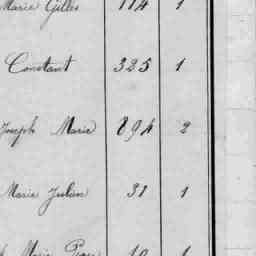 Marie Gilles 114 1
Constant 325 1
Joseph Marie 894 2
Marie Julien 31 1
Marie